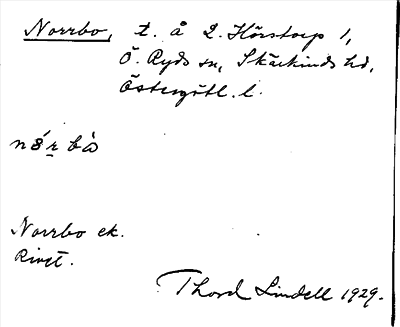 Norrbo, t. å 2. Hörstorp 1,
Ö. Ryds sn, Skärkinds hd,
Östergötl. l.
nórbò
Norrbo ek.
Rivet.
Thord Lindell 1929.